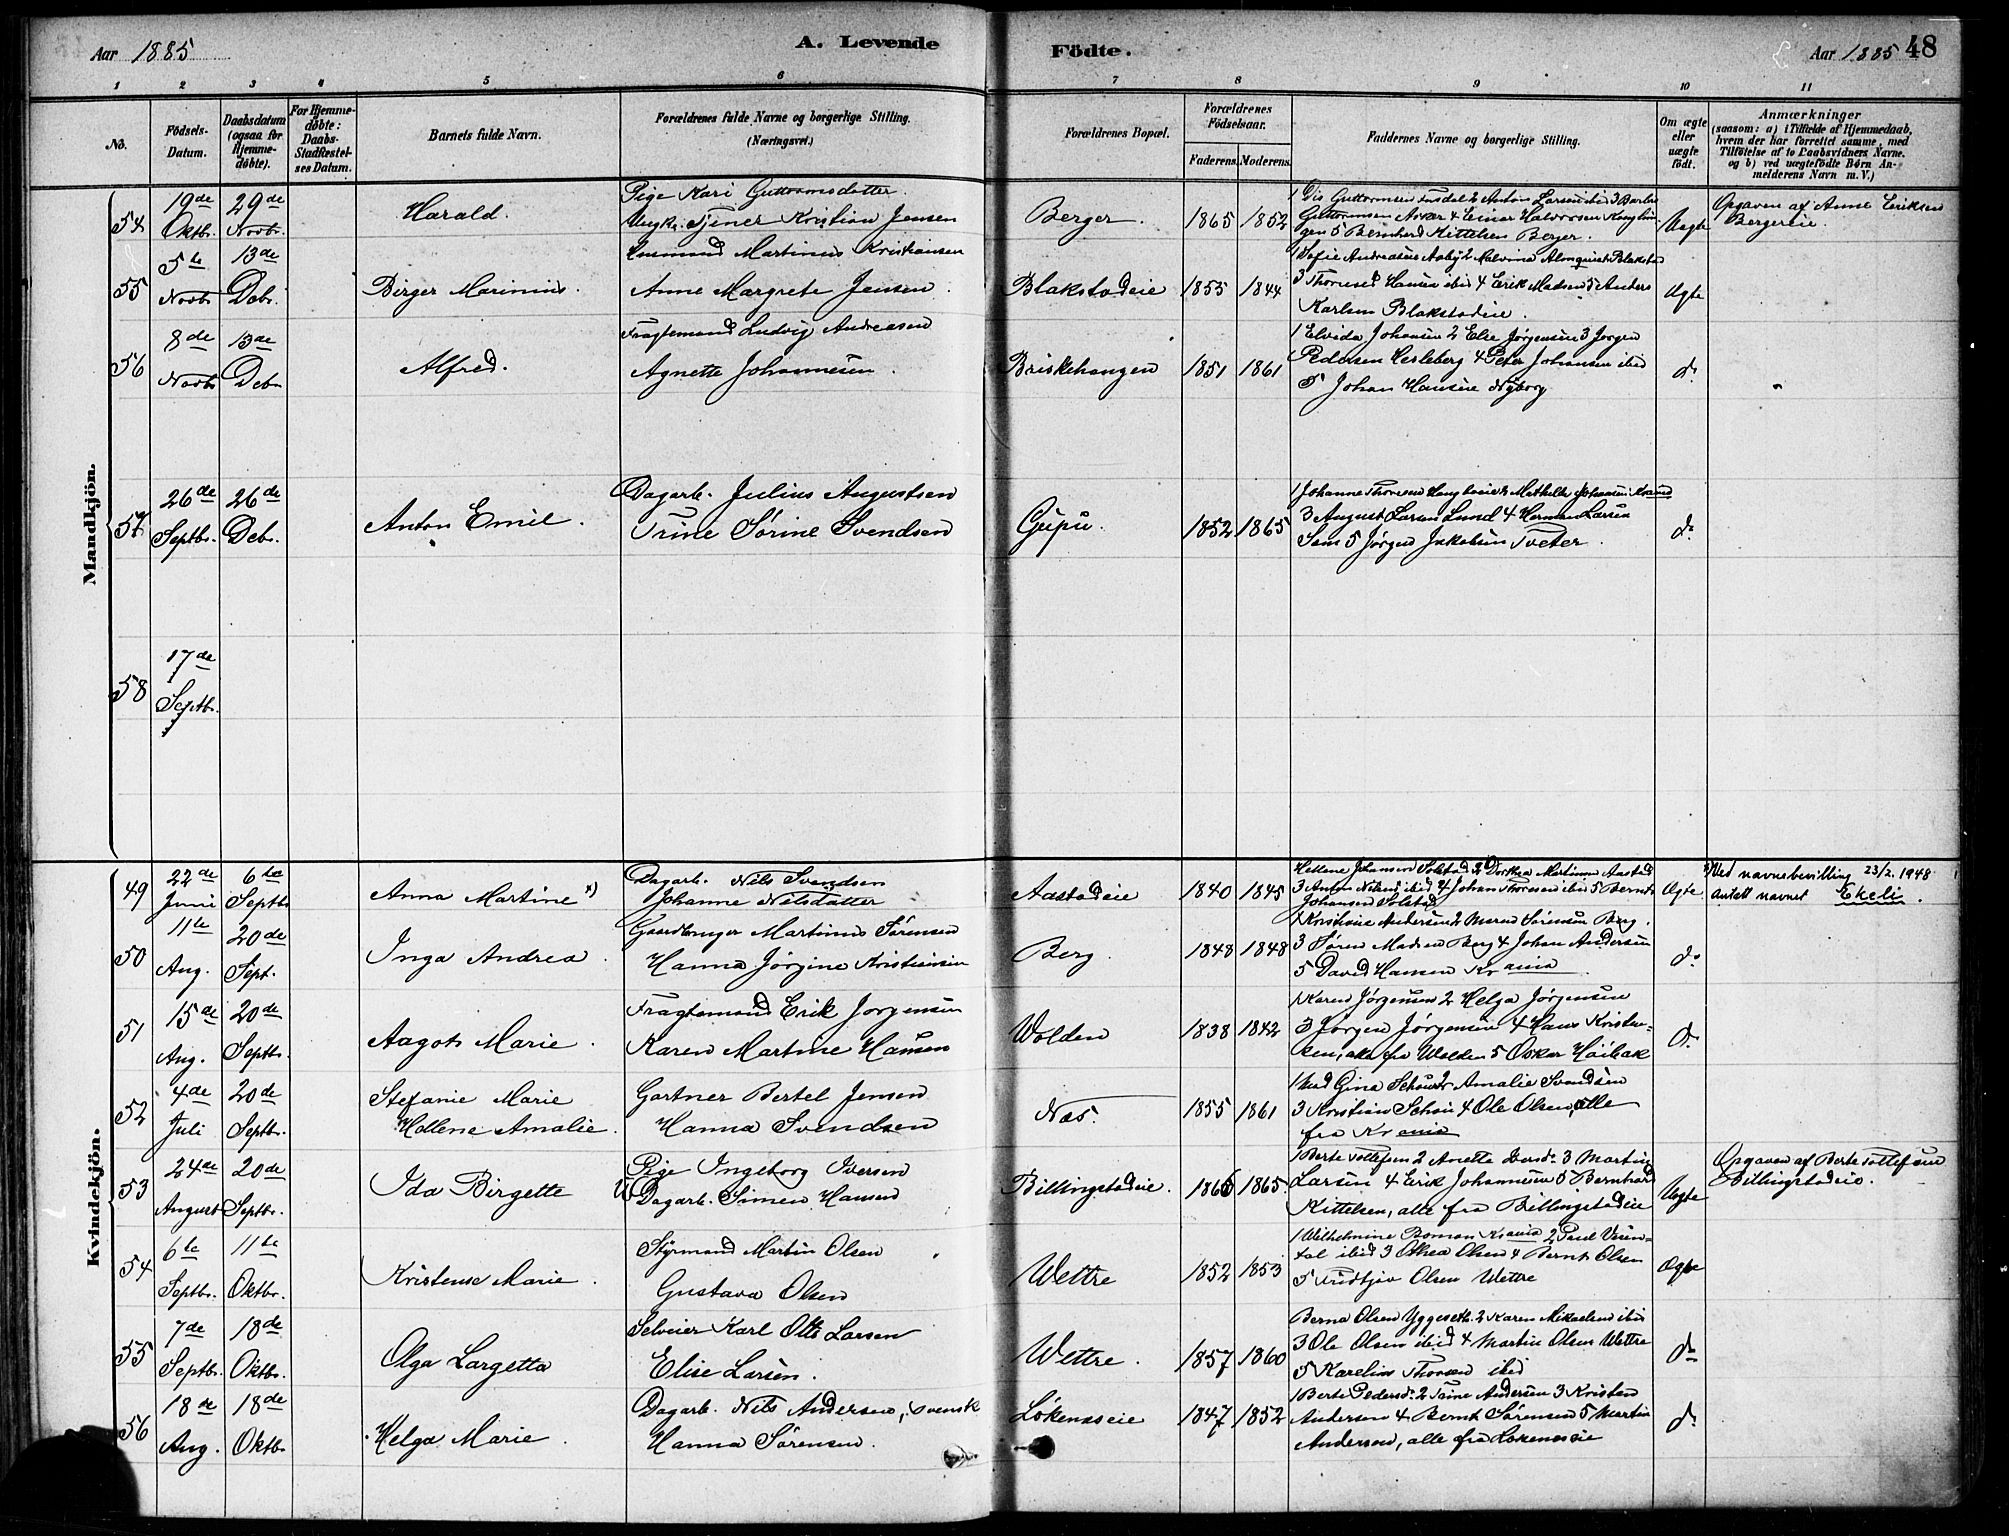 Aar 1885
A. Levende
Födte.
Aar 1885
48
1 2 3 4 5 6 7 8 9 10 11
No.
Födsels-Datum.
Daabsdatum (ogsaa for Hjemme-døbte).
For Hjemme-døbte: Daabs-Stadfæstel-ses Datum.
Barnets fulde Navn.
Forældrenes fulde Navne og borgerlige Stilling.
(Næringsvei.)
Forældrenes Bopæl.
Forældrenes Födselsaar.
Faderens. Moderens.
Faddernes Navne og borgerlige Stilling.
Om ægte eller uægte födt.
Anmærkninger
(saasom: a) i Tilfælde af Hjemmedaab,
hvem der har forrettet samme, med
Tilföielse af to Daabsvidners Navne.
og b) ved uægtefödte Börn An-
melderens Navn m. V.)
Mandkjön.
54
19de Oktbr.
29de Novbr.
Harald.
Pige Kari Guttormsdatter.
Ungk. Tjener Kristian Jensen
Berger.
1865 1852
Guttormsen Asker 4 Einar Halvorsen
gen 5 Bernhard Kittelsen Berger.
Uægte
Opgaven af Anne Eriksen
Bergereie.
55
5te Novbr
13de Debr.
Birger Marinius.
Husmand Martinus Kristiansen
Anne Margrete Jensen.
Blakstadeie
1855 1844
3 Thorvald Hansen ibid 4 Erik Madsen 5 Anders
Karlsen Blakstadeie.
Ægte
56
8de Novbr
13de Debr
Alfred.
Fragtemand Ludvig Andreasen
Agnette Johannesen.
Briskehaugen
1851 1861
1 Elvida Johansen 2 Else Jørgensen 3 Jørgen
Pedersen Hesleberg 4 Peter Johansen ibid
5 Johan Hansen Nyborg
do
57
26de Septbr.
26de Debr.
Anton Emil.
Dagarb. Julius Augustsen
Trine Sørine Svendsen
Gupu.
1852 1865
3 August Larsen Lund 4 Herman Larsen
Sem 5 Jørgen Jakobsen Tveter.
do
58
17de Septbr.
Kvindekjön.
49
22de Juni
6te Septbr
Anna Martine x)
Dagarb. Nils Svendsen
Johanne Nilsdatter
Aastadeie
1840 1845
Hellene Johansen Solstad 2 Dorthea Martinsen Aastad
3 Anton Nilsen ibid 4 Johan Thoresen ibid 5 Bernt
Johansen Solstad
Ægte
x) Ved navnebevilling 23/2. 1948
antatt navnet Ekeli.
50
11te Aug.
20de Sept.
Inga Andrea.
Gaardbruger Martinus Sørensen
Hanna Jørgine Kristiansen
Berg.
1848 1848
1 Kristiane Andersen 2 Maren Sørensen Berg.
3 Søren Madsen Berg 4 Johan Andersen
5 David Hansen Krania
do
51
15de Aug.
20de Septbr.
Aagot Marie.
Fragtemand Erik Jørgensen
Karen Martine Hansen
Wolden
1838 1842
1 Karen Jørgensen 2 Helga Jørgensen
3 Jørgen Jørgensen 4 Hans Kristen-
sen, alle fra Wolden 5 Oskar Høibak
do
52
4de Juli
20de Septbr.
Stefanie Marie
Hellene Amalie.
Gartner Bertel Jensen
Hanna Svendsen
Næs.
1855 1861
1 Mad Gina Schou 2 Amalie Svendsen
3 Kristian Schou 4 Ole Olsen, alle
fra Krania
53
24de August
20de Septbr.
Ida Birgette
Pige Ingeborg Iversen
U. Dagarb. Simen Hansen
Billingstadeie.
1866 1865.
1 Berte Tollefsen 2 Anette Iversd. 3 Martin
Larsen 4 Erik Johannesen 5 Bernhard
Kittelsen, alle fra Billingstadeie
Uægte
Opgaven af Berte Tollefsen
Billingstadeie.
54
6te Septbr.
11te Oktbr.
Kristense Marie.
Styrmand Martin Olsen
Gustava Olsen
Wettre
1852 1853
1 Wilhelmine Boman Krania 2 Paul
ibid 3 Othea Olsen 4 Bernt Olsen
5 Fridtjov Olsen Wettre
Ægte
55
7de Septbr.
18de Oktbr.
Olga Largetta
Selveier Karl Otto Larsen
Elise Larsen.
Wettre.
1857 1860
Berna Olsen Yggeseth. 2 Karen Mikaelsen ibid
3 Ole Olsen ibid 4 Martin Olsen Wettre
5 Karelius Thorsen ibid
do
56
18de Aug.
18de Oktbr
Helga Marie.
Dagarb. Nils Andersen, svensk
Hanna Sørensen.
Løkenæseie
1847 1852
1 Berte Pedersd. 2 Trine Andersen 3 Kristen
Andersen 4 Bernt Sørensen 5 Martin
Andersen, alle fra Løkenæseie
do